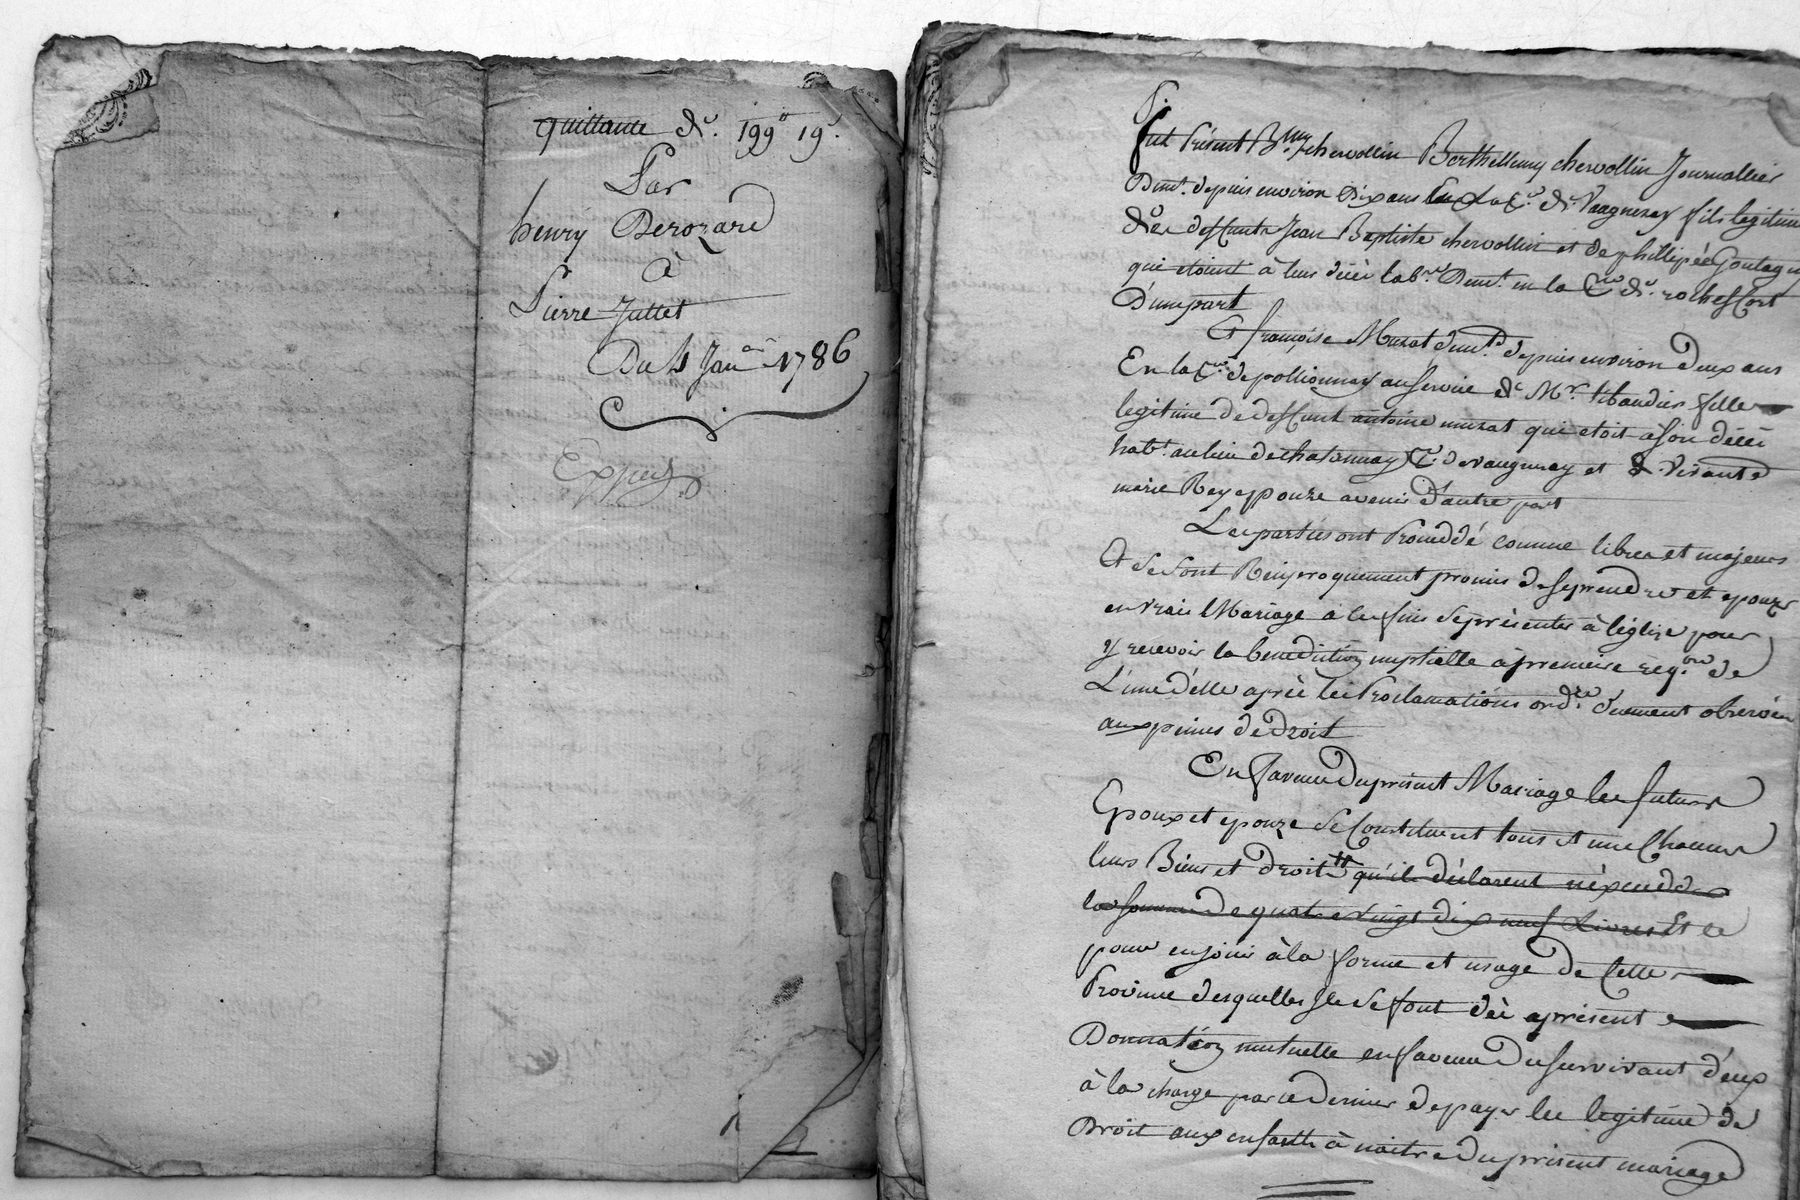 quittance de. 199ᴴ 19ˢ.
Par
henry Derozard
à
Pierre Juttet
Du 4 Janᵉʳ 1786
Exped
Fut Présent Bmy chervollin Barthellemy chervollin Journallier
Demt. depuis environ Dix ans la Parsse de Vaugneray fils legitime
de deffunts Jean Baptiste chervollin et de phillipée Goutagny
qui etoient à leur décè labrs Demt. en la Psse de rochesfort
D'une part
Et françoise Murat demte. depuis environ deux ans
En la Psse de pollionnay au service de Mr. thibaudier fille
legitime de deffunt antoine murat qui etoit à son décè
habt. au lieu de chatannay Psse de vaugneray et de vivante
marie Rey epouze avenir d'autre part
Les parties ont Proceddé comme libres et majeurs
Et se sont Reciproquement promis de se prendre et epouzer
en vrais Mariage à les fins se présenter à l'églize pour
y recevoir la benediction nuptialle à premiere reqon de
L'une d'elle après les Proclamations ordre duement observées
aux peines de Droit
En faveur du présent Mariage les futurs
Epoux et epouze se Constituent tous et un Chacun
leurs Biens et droits qu'ils déclarent n'éxcedder
la somme de quatre vingt dix neuf Livres Et ce
pour en jouir à la forme et usage de Cette
Province desquelles ils se font dès aprésent
Donnation mutuelle en faveur du survivant d'eux
à la charge par ce dernier de payer les legitime de
Droit aux enfants à naitre du présent mariage